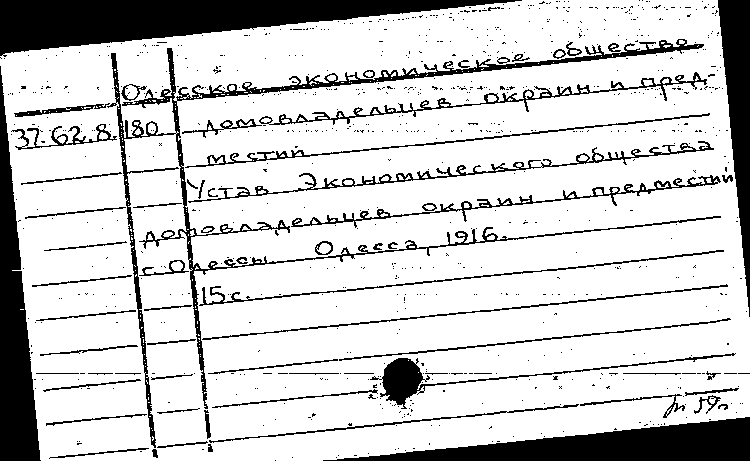 Одесское экономическое общество
37.62.8.180 домовладельцев окраин и пред-
местий
Устав Экономического общества
домовладельцев окраин и предместий
г. Одессы. Одесса, 1916.
15 с.